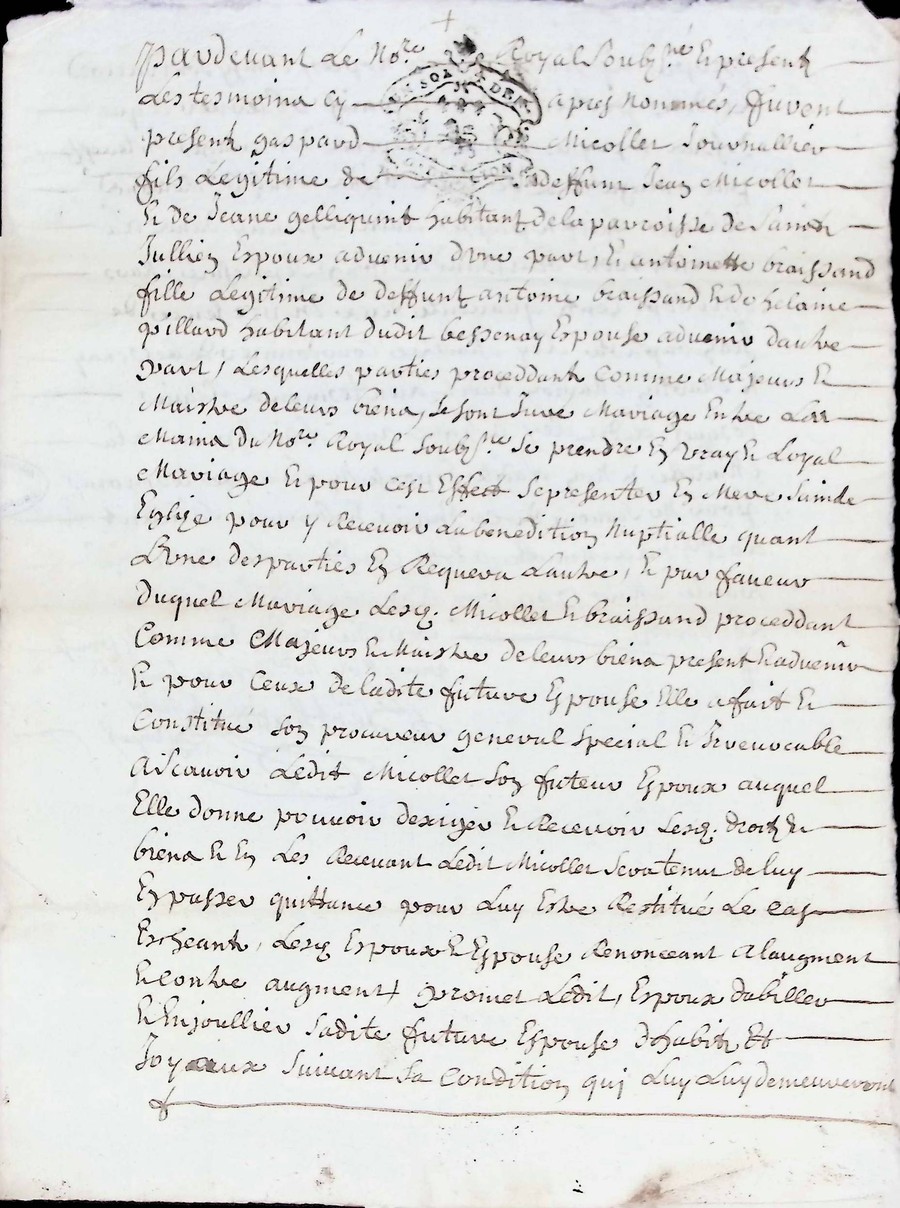 Pardevant Le No.re Royal Soub.né Et present
Les tesmoins Cy apres nommés, furent
present gaspard Micollet Journallier
fils Legitime de deffunt Jean Micollet
Et de Jeane gelliquint habitant de la parroisse de Sainct
Jullien Espoux advenir d'vne part, Et antoinette braissand
fille Legitime de deffunt antoine braissand Et de helaine
pillard habitant dudit bessenay Espouse advenir dautre
part, Lesquelles parties proceddant Comme Majeurs Et
Maistre de leurs biens, se sont Jure Mariage Entre Les
Mains du No.re Royal Soub.né Se prendre En Vray Et Loyal
Mariage Et pour cest Effect se presenter En Mere Sainde
Eglize pour y Recevoir La benedition Nuptialle quant
L'vne des parties En Requera Lautre, Et par faveur
Duquel Mariage Lesq. Micollet Et braissand proceddant
Comme Majeurs Et Maistre de leurs biens present Et advenir
Et pour Ceux de ladite future Espouse Elle a fait Et
Constitué son procureur general special Et Irrevocable
a Scavoir Ledit Micollet son futeur Espoux auquel
Elle donne pouvoir dexiger Et Recevoir Lesq. droits Et
biens Et En Les Recevant Ledit Micollet sera tenut de luy
En passer quittance pour Luy Estre Restitué Le cas
Escheant, Lesq Espoux Et Espouse Renonceant a laugment
Et contre augment, promet Ledit, Espoux dabiller
Et Enjoullier sadite future Espouse d'habits Et
Joyaux suivant sa Condition quj Luy Luy demeureront